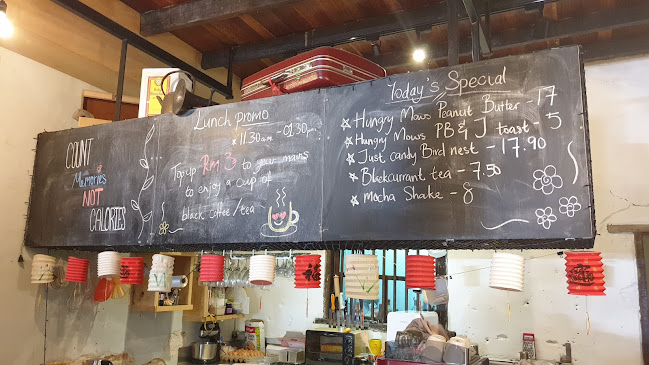 COUNT
Memories
NOT
CALORIES
Lunch promo
11.30am - 01.30pm
Top up RM 3 to your mains
to enjoy a cup of
black coffee/tea
Today's Special
Hungry Mows Peanut Butter - 17
Hungry Mows PB & J toast - 5
Just candy Bird nest - 17.90
Blackcurrant tea - 7.50
Mocha Shake - 8